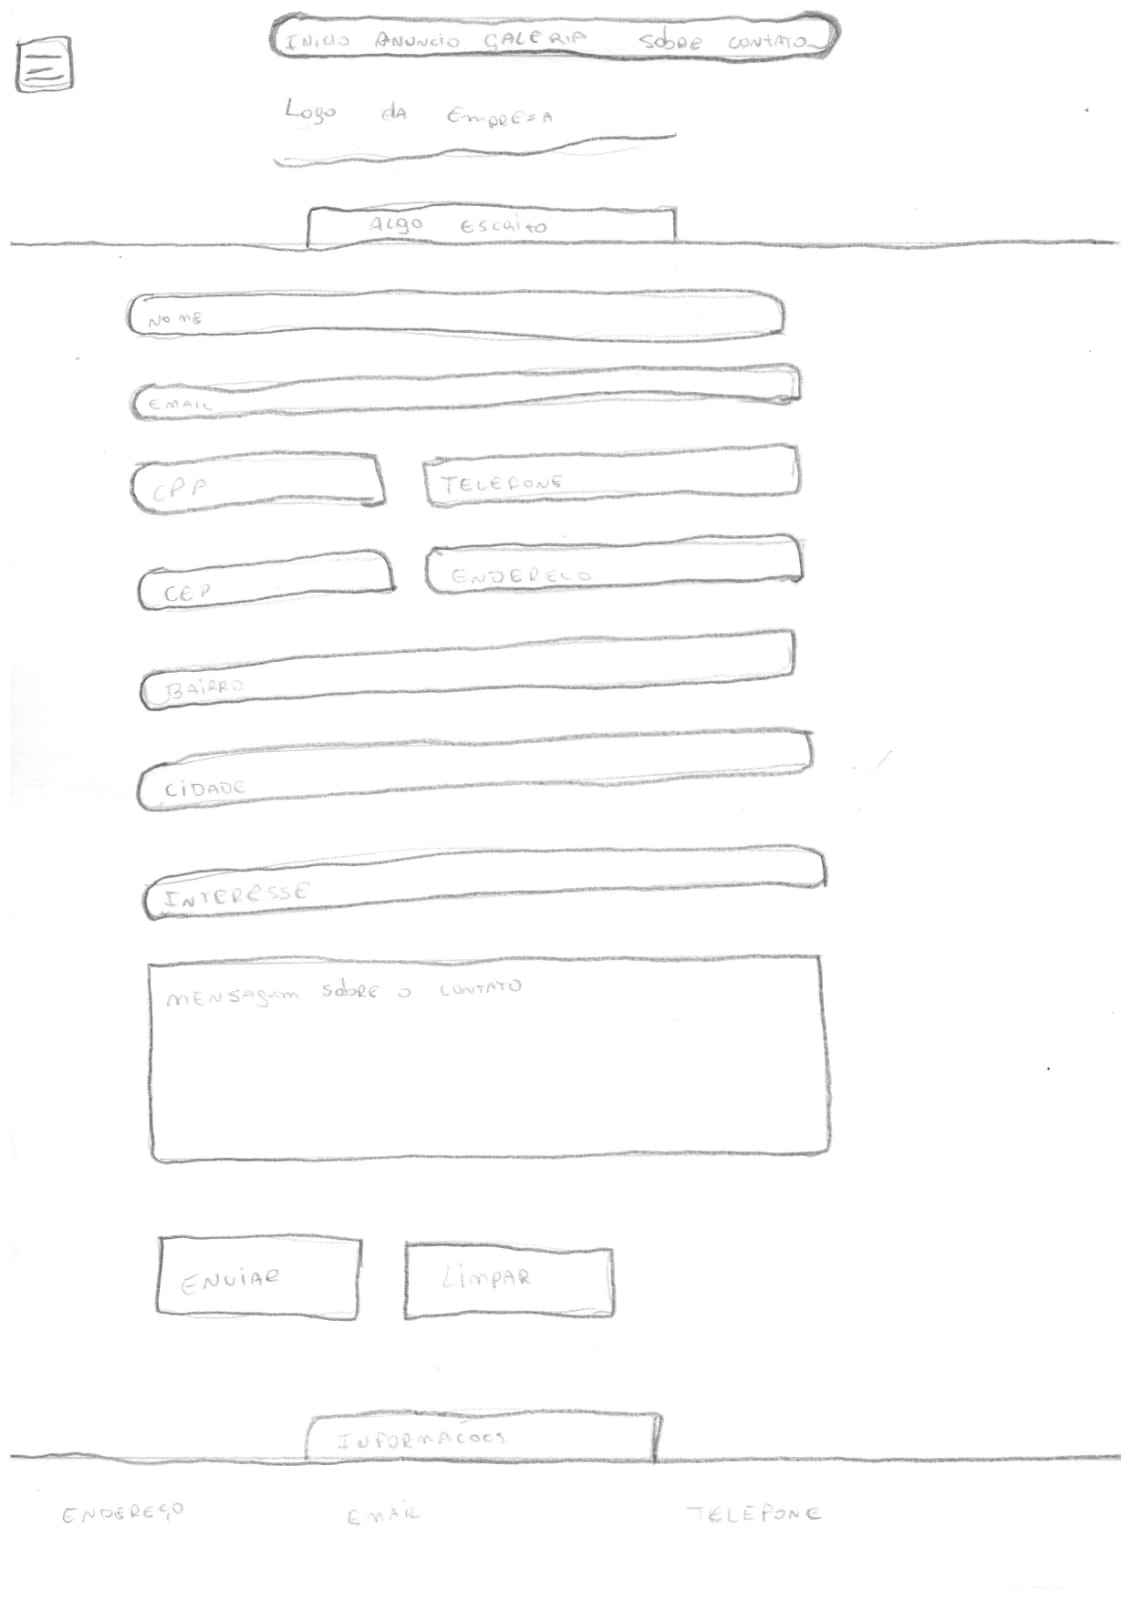 INICIO ANUNCIO GALERIA SobRE CONTATO
Logo dA EmPRESA
Algo Escrito
NomE
EMAIL
CPF TELEFONE
CEP ENDEREÇO
BAiRRO
CiDADE
INTERESSE
MENSAgem SobRE o CONTATO
ENViAR LimPAR
INFORMAÇOES
ENDEREÇO EmAiL TELEFONE